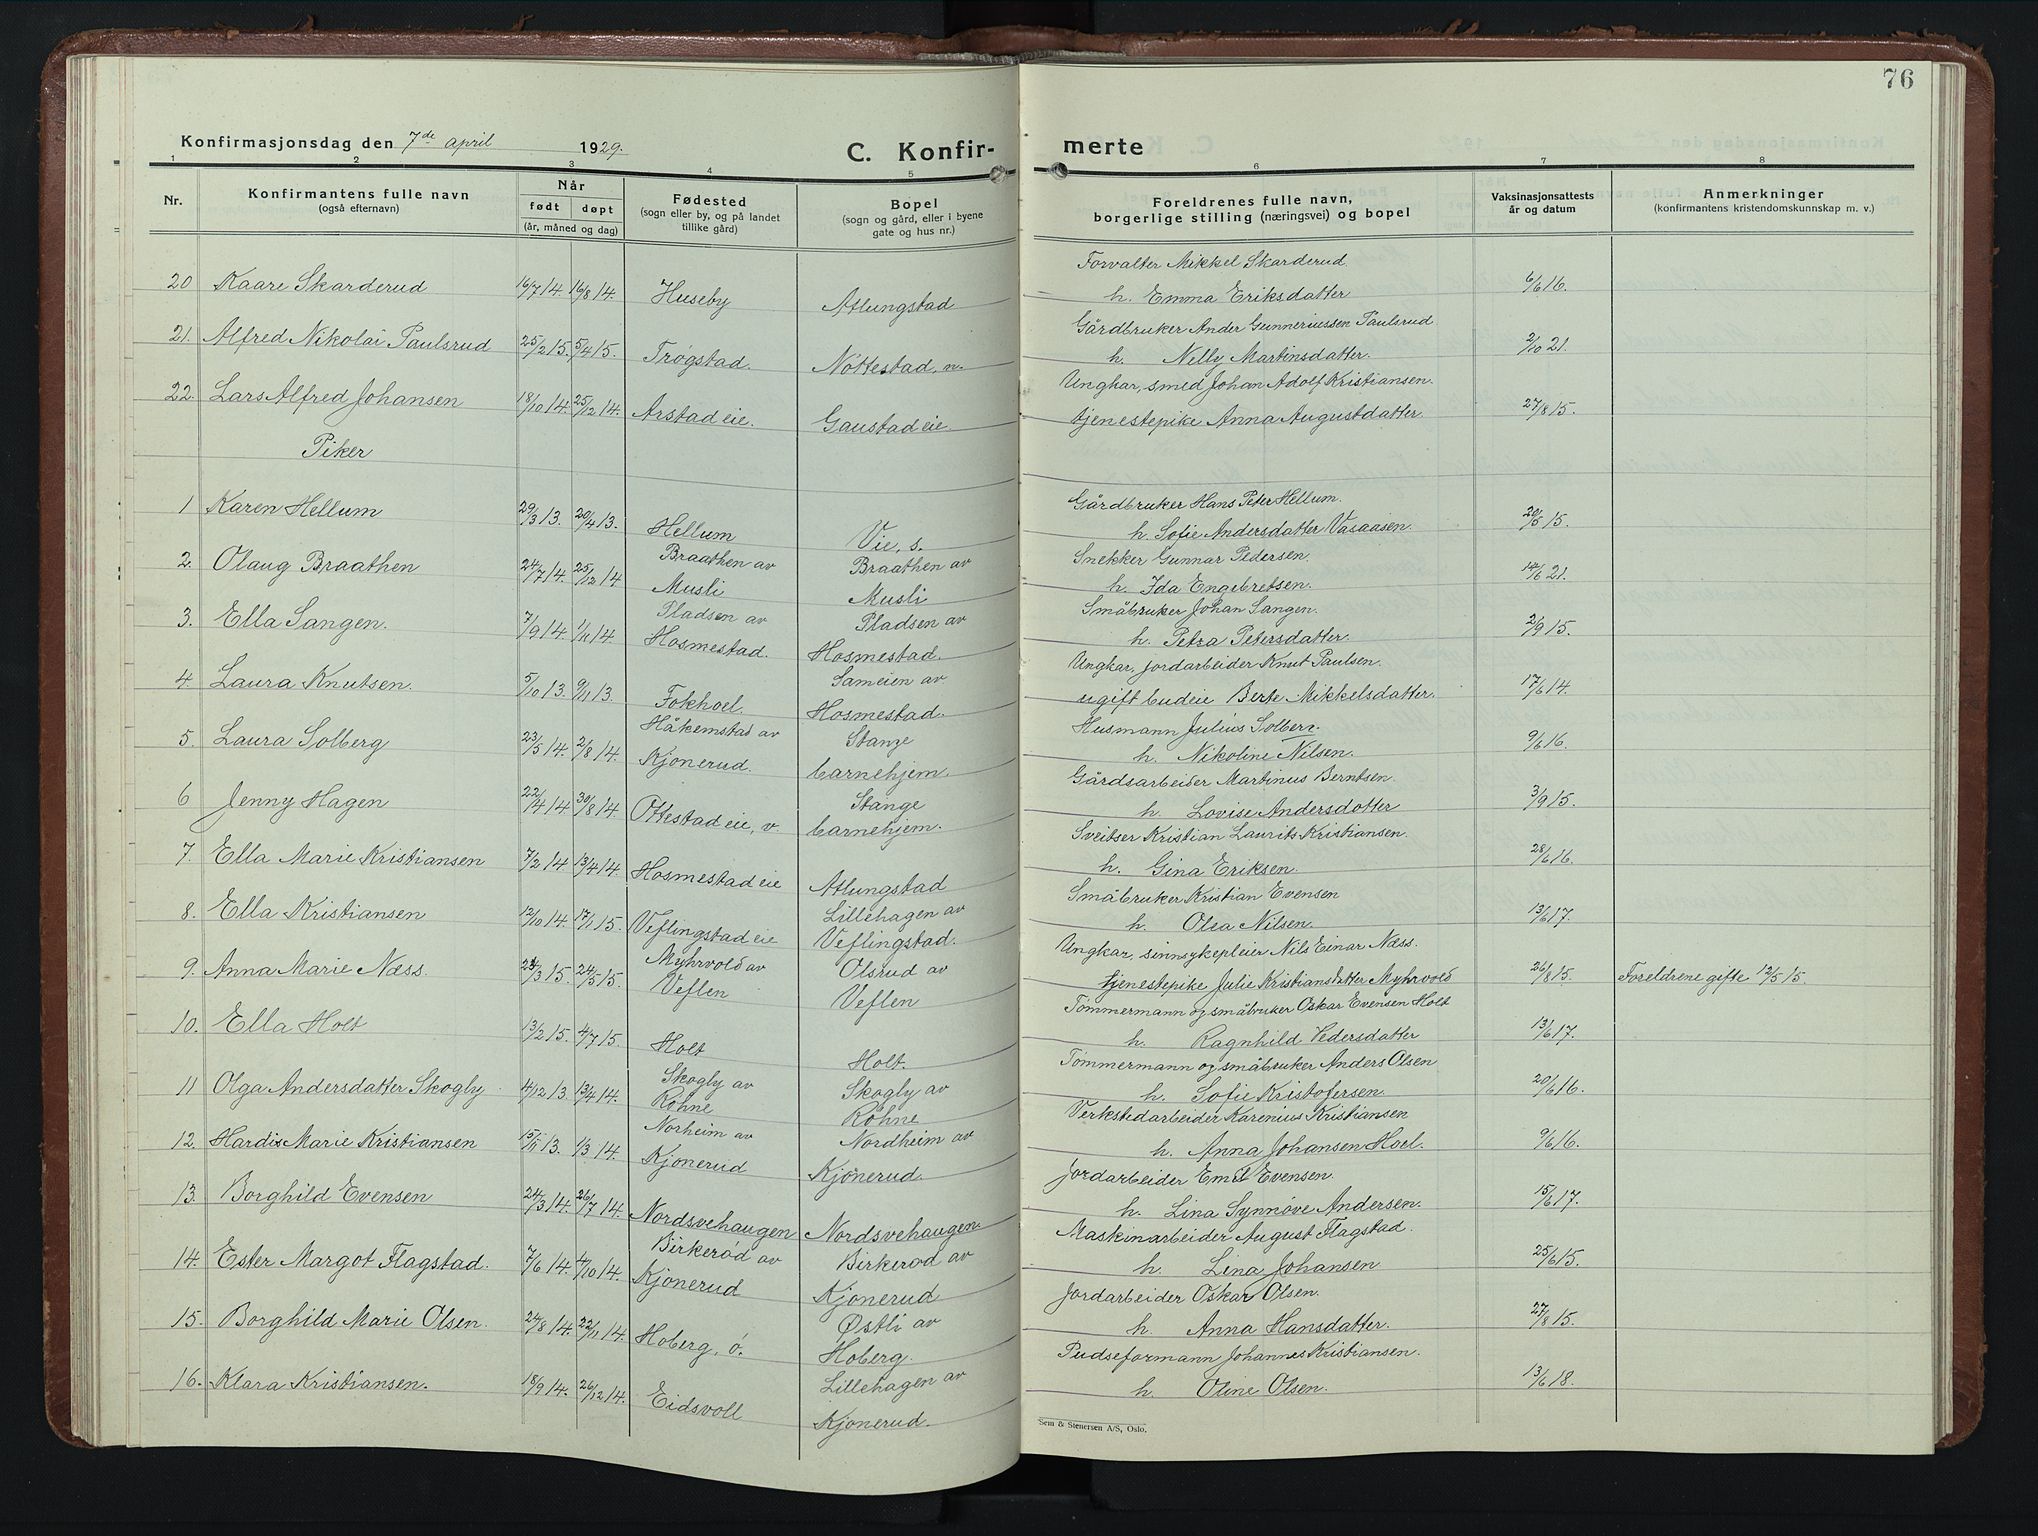 76
Konfirmasjonsdag den 7de april 1929.
C. Konfir-
merte
1 2 3 4 5 6 7 8
Nr.
Konfirmantens fulle navn
(også efternavn)
Når
født døpt
(år, måned og dag)
Fødested
(sogn eller by, og på landet
tillike gård)
Bopel
(sogn og gård, eller i byene
gate og hus nr.)
Foreldrenes fulle navn,
borgerlige stilling (næringsvei) og bopel
Vaksinasjonsattests
år og datum
Anmerkninger
(konfirmantens kristendomskunnskap m. v.)
Forvalter Mikkel Skarderud.
20 Kaare Skarderud 16/7 14. 16/8 14. Huseby Atlungstad h. Emma Eriksdatter 6/6 16.
Gårdbruker Ander Gunneriussen Paulsrud
21. Alfred Nikolai Paulsrud 25/2 15. 5/4 15. Trøgstad. Nottestad, n. h. Nelly Martinsdatter. 2/10 21.
Ungkar, smed Johan Adolf Kristiansen.
22. Lars Alfred Johansen 18/10 14. 25/12 14. Arstad eie. Gaustad eie. tjenestepike Anna Augustdatter. 27/8 15.
Piker
Gårdbruker Hans Peter Hellum.
1 Karen Hellum 29/3 13. 20/4 13. Hellum Vie, s. h. Sofie Andersdatter Vasaasen. 20/5 15.
Braathen av Braathen av Snekker Gunnar Pedersen.
2. Olaug Braathen 24/7 14. 25/12 14 Musli Musli h. Ida Engebretsen. 14/6 21.
Pladsen av Pladsen av Småbruker Johan Sangen.
3. Ella Sangen. 7/9 14. 1/11 14. Hosmestad. Hosmestad. h. Petra Petersdatter. 2/9 15.
Sameien av Ungkar, jordarbeider Knut Paulsen.
4. Laura Knutsen. 5/10 13. 9/11 13. Fokhoel. Hosmestad. ugift budeie Berte Mikkelsdatter. 17/6 14.
Håkemstad av Stange Husmann Julius Solberg.
5. Laura Solberg 23/5 14. 2/8 14. Kjonerud. barnehjem. h. Nikoline Nilsen. 9/6 16.
Stange Gårdsarbeider Martinus Berntsen.
6 Jenny Hagen 22/4 14. 30/8 14. Ottestad eie, v. barnehjem. h. Lovise Andersdatter 3/9 15.
Sveitser Kristian Laurits Kristiansen.
7. Ella Marie Kristiansen 7/2 14. 13/4 14. Hosmestad eie Atlungstad h. Gina Eriksen. 28/6 16.
Lillehagen av Småbruker Kristian Evensen
8. Ella Kristiansen 12/10 14. 17/1 15. Veflingstad eie Veflingstad. h. Olea Nilsen. 13/6 17.
Myhrvold av Olsrud av Ungkar, sinnsykepleier Nils Einar Næss.
9. Anna Marie Næss. 24/3 15. 24/5 15. Veflen Veflen tjenestepike Julie Kristiansdatter Myhrvold 26/8 15. Foreldrene gifte 12/5 15.
Tømmermann og småbruker Oskar Evensen Holt
10. Ella Holt 13/2 15. 4/7 15. Holt Holt. h. Ragnhild Pedersdatter 13/6 17.
Skogly av Skogly av Tømmermann og småbruker Anders Olsen
11 Olga Andersdatter Skogly 4/12 13. 13/4 14. Rohne Rohne h. Sofie Kristofersen. 20/6 16.
Norheim av Nordheim av Verkstedarbeider Karenius Kristiansen
12. Hardis Marie Kristiansen 15/11 13. 1/3 14. Kjonerud Kjonerud. h. Anna Johansen Hoel. 9/6 16.
Jordarbeider Emil Evensen.
13. Borghild Evensen 24/3 14. 26/7 14. Nordsvehaugen Nordsvehaugen. h. Lina Synnøve Andersen. 15/6 17.
Birkerød av Birkerød av Maskinarbeider August Flagstad.
14. Ester Margot Flagstad. 7/6 14. 4/10 14. Kjonerud Kjonerud h. Lina Johansen 25/6 15.
Østli av Jordarbeider Oskar Olsen.
15. Borghild Marie Olsen. 24/8 14. 22/11 14. Hoberg, ø. Hoberg. h. Anna Hansdatter. 27/8 15.
Lillehagen av Pudseformann Johannes Kristiansen.
16. Klara Kristiansen. 18/9 14. 26/12 14. Eidsvoll Kjonerud. h. Oline Olsen. 13/6 18.
Sem & Stenersen A/S, Oslo.